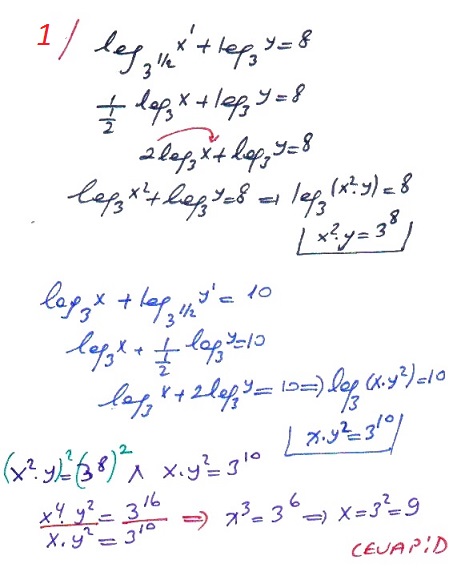 1/ log_{3^{1/2}} x^1 + log_3 y = 8
\frac{1}{\frac{1}{2}} log_3 x + log_3 y = 8
2log_3 x + log_3 y = 8
log_3 x^2 + log_3 y = 8 ⇒ log_3 (x^2·y) = 8
x^2·y = 3^8
log_3 x + log_{3^{1/2}} y^1 = 10
log_3 x + \frac{1}{\frac{1}{2}} log_3 y = 10
log_3 x + 2log_3 y = 10 ⇒ log_3 (x·y^2) = 10
x·y^2 = 3^{10}
(x^2·y)^2 = (3^8)^2 ∧ x·y^2 = 3^{10}
\frac{x^4·y^2}{x·y^2} = \frac{3^{16}}{3^{10}} ⇒ x^3 = 3^6 ⇒ x = 3^2 = 9
CEVAP:D